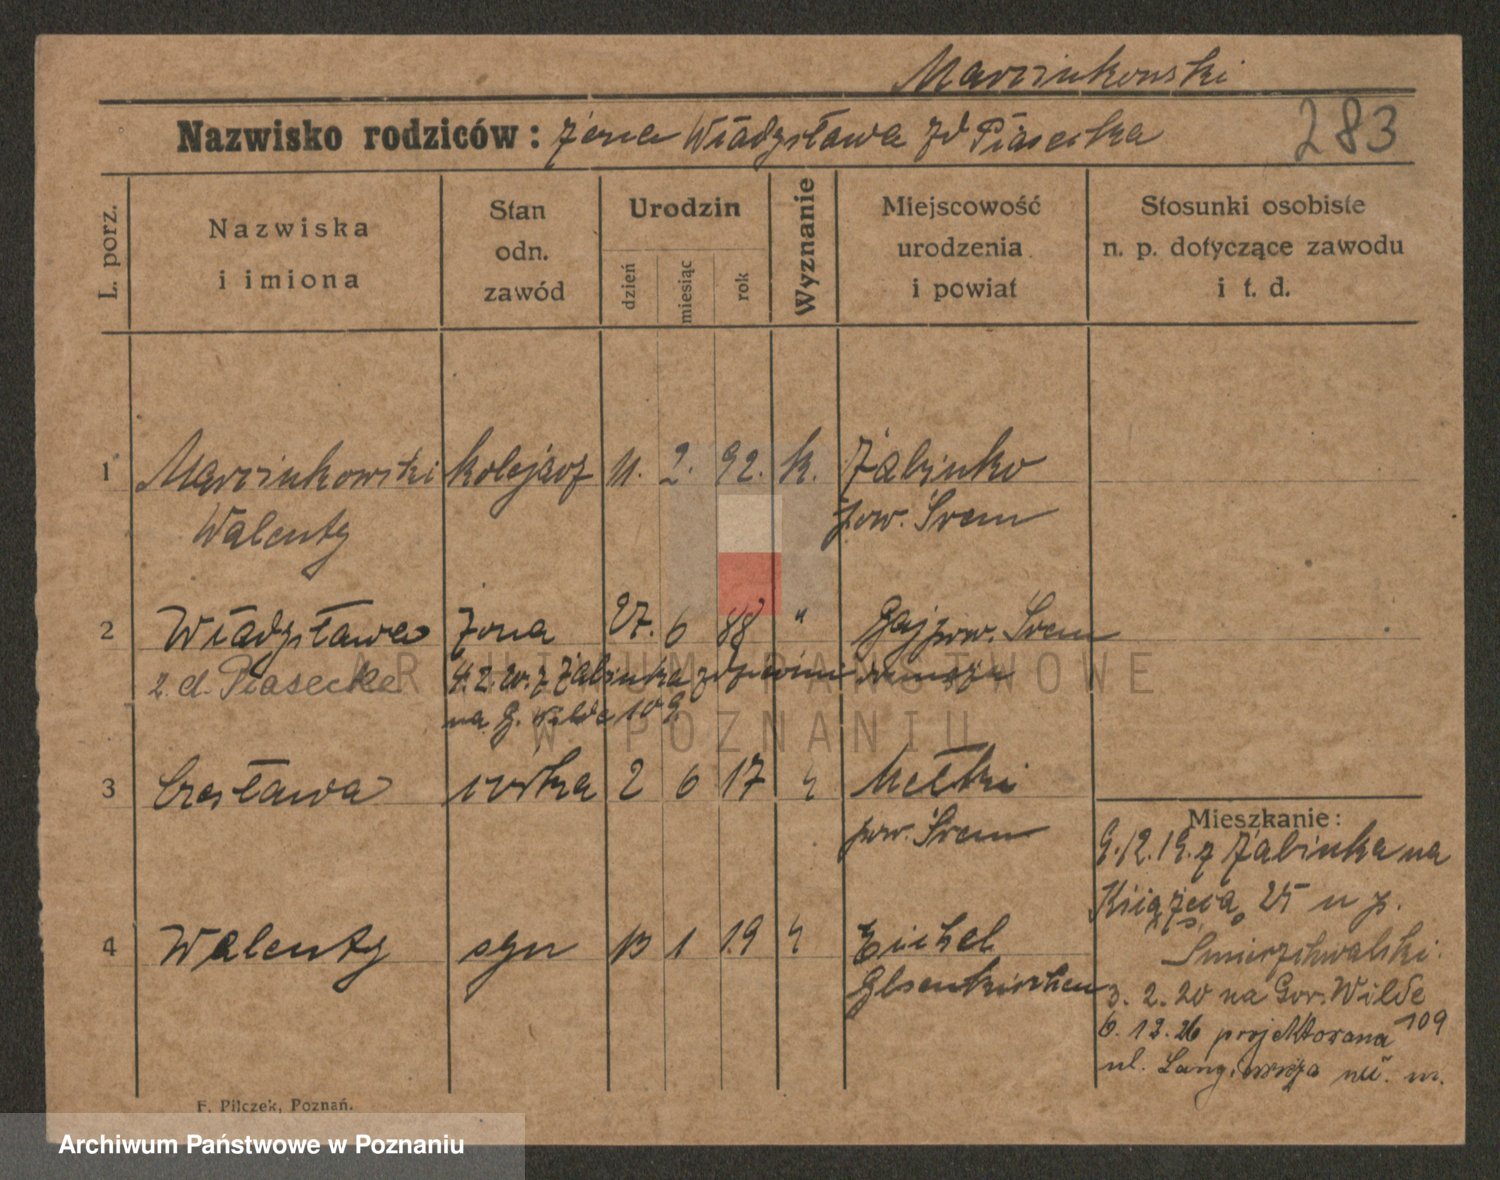 Marcinkowski
Nazwisko rodziców: żona Władysława zd Piasecka
283
L. porz.
Nazwiska
i imiona
Stan
odn.
zawód
Urodzin
dzień
miesiąc
rok
Wyznanie
Miejscowość
urodzenia
i powiat
Stosunki osobiste
n. p. dotyczące zawodu
i t. d.
1 Marcinkowski kolejarz 11. 2. 92. k. Żabinko
Walenty pow. Śrem
2 Władysława żona 27. 6 88 " Gaj pow. Śrem
z. d. Piasecka 4.2.20. z Żabinka
na G. Wilda 109
3 Czesława córka 2 6 17 " Mełki
pow. Śrem
4 Walenty syn 13 1 19 " Eickel
Glsenkirchen
Mieszkanie:
9.12.19. z Żabinka na
Książęca 25 u p.
Smierzchwalski.
3. 2. 20 na Gor. Wilde
109
6. 12. 26 projektowana
ul. m.
F. Pilczek, Poznań.
ARCHIWUM PAŃSTWOWE
W POZNANIU
Archiwum Państwowe w Poznaniu